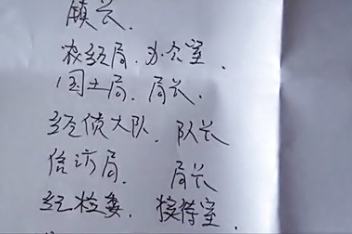 镇长.
农经局. 办公室.
国土局. 局长.
经侦大队. 队长
信访局. 局长
纪检委. 接待室.